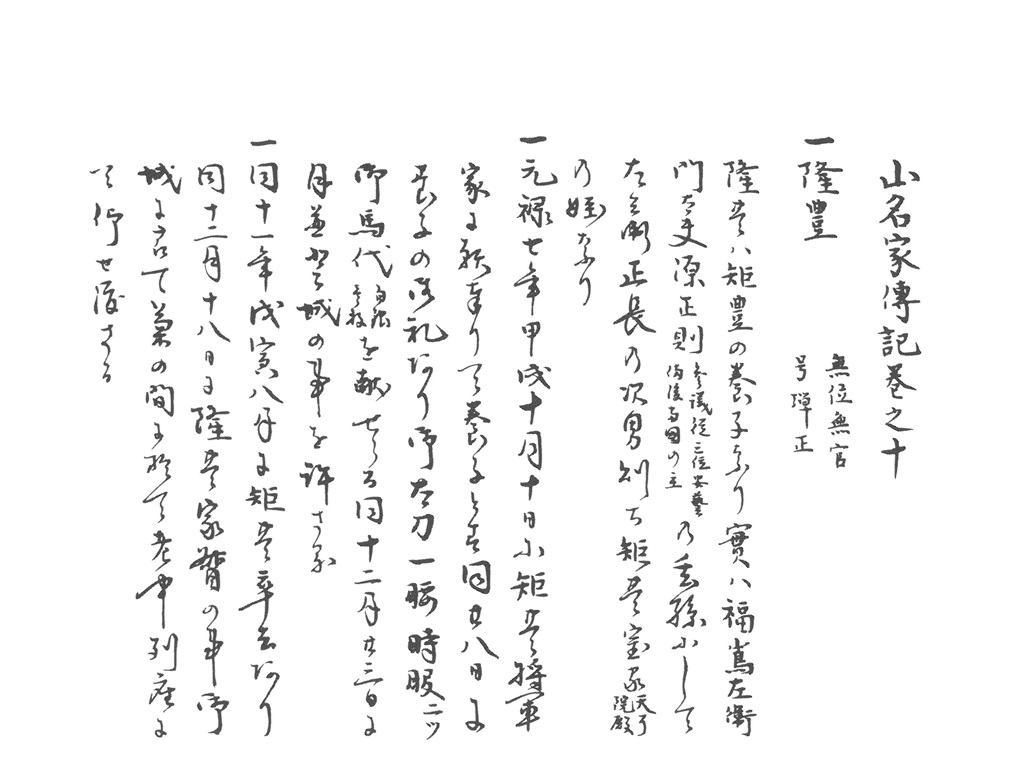 山名家傳記巻之十
一隆豊 無位無官
号弾正
隆豊ハ矩豊の養子なり實ハ福嶌左衛
門大夫源正則 参議従三位安藝
備後両国の主 の玄孫にして
左兵衛正長の次男則ち矩豊室家 天了
院殿
の姪なり
一元禄七年甲戌十月十日に矩豊将軍
家に願奉りて養子とす同廿八日に
養子の御礼あり御太刀一腰時服二ツ
御馬代 白銀
壱枚 を献せらる同十二月廿三日に
月並登城の事を許さる
一同十一年戊寅八月に矩豊卒去あり
同十二月十八日に隆豊家督の事御
城に召て菊の間に於て老中列座に
て仰せ渡さる